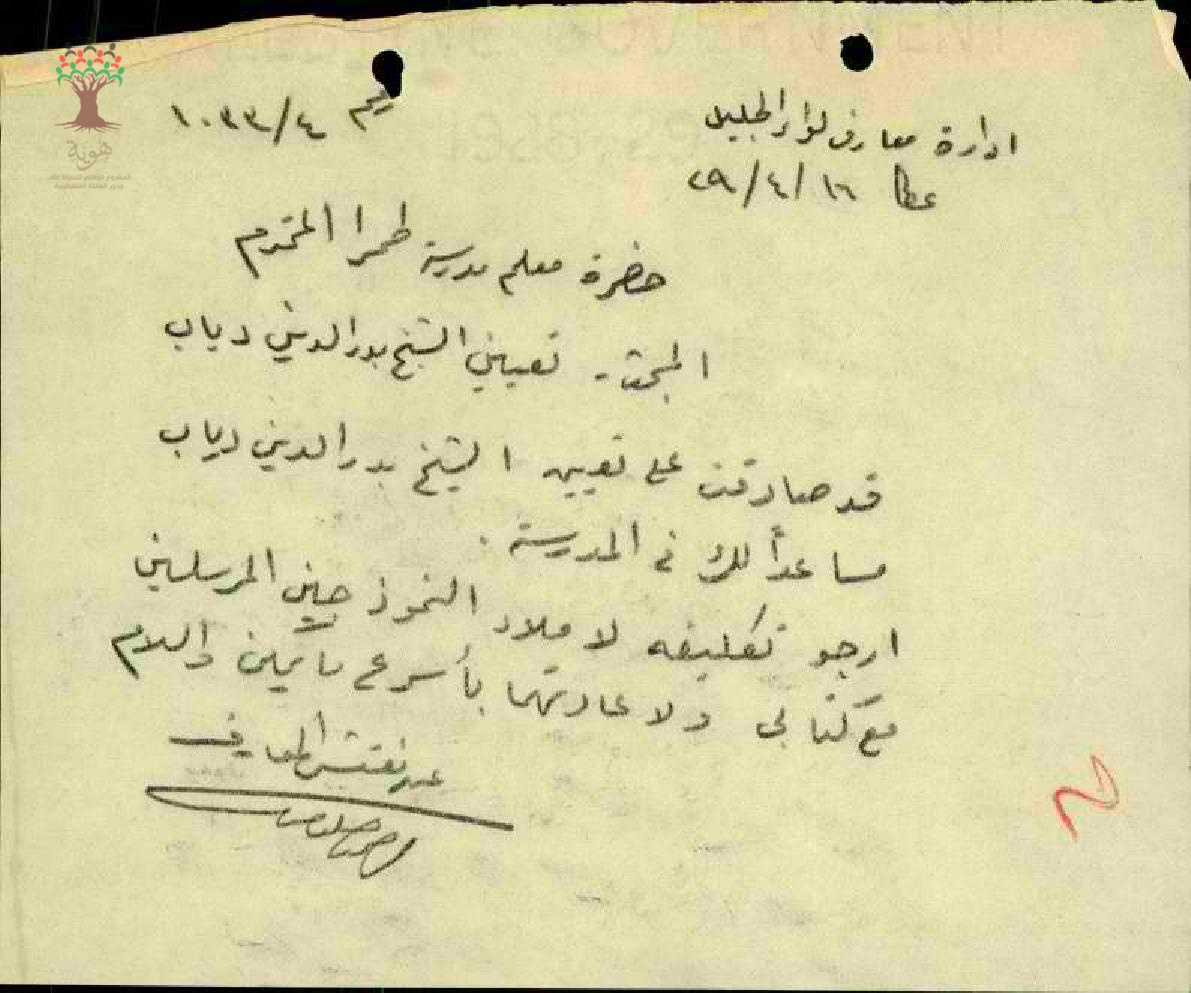 ادارة معارف لواء الجليل
نمرة ١٠٣٣/٤
عكا ١٦/٤/٢٩
حضرة معلم مدرسة طمرا المحترم
المبحث - تعيين الشيخ بدر الدين دياب
قد صادقت على تعيين الشيخ بدر الدين دياب
مساعداً لك في المدرسة.
ارجو تكليفه لاملاء النموذجين المرسلين
مع كتابي ولاعادتهما بأسرع ما يمكن والسلام
عن مفتش المعارف
هوية